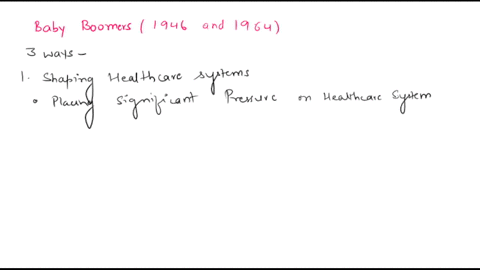 Baby Boomers (1946 and 1964)
3 ways -
1. Shaping Healthcare systems
• Placing significant Pressure on Healthcare System